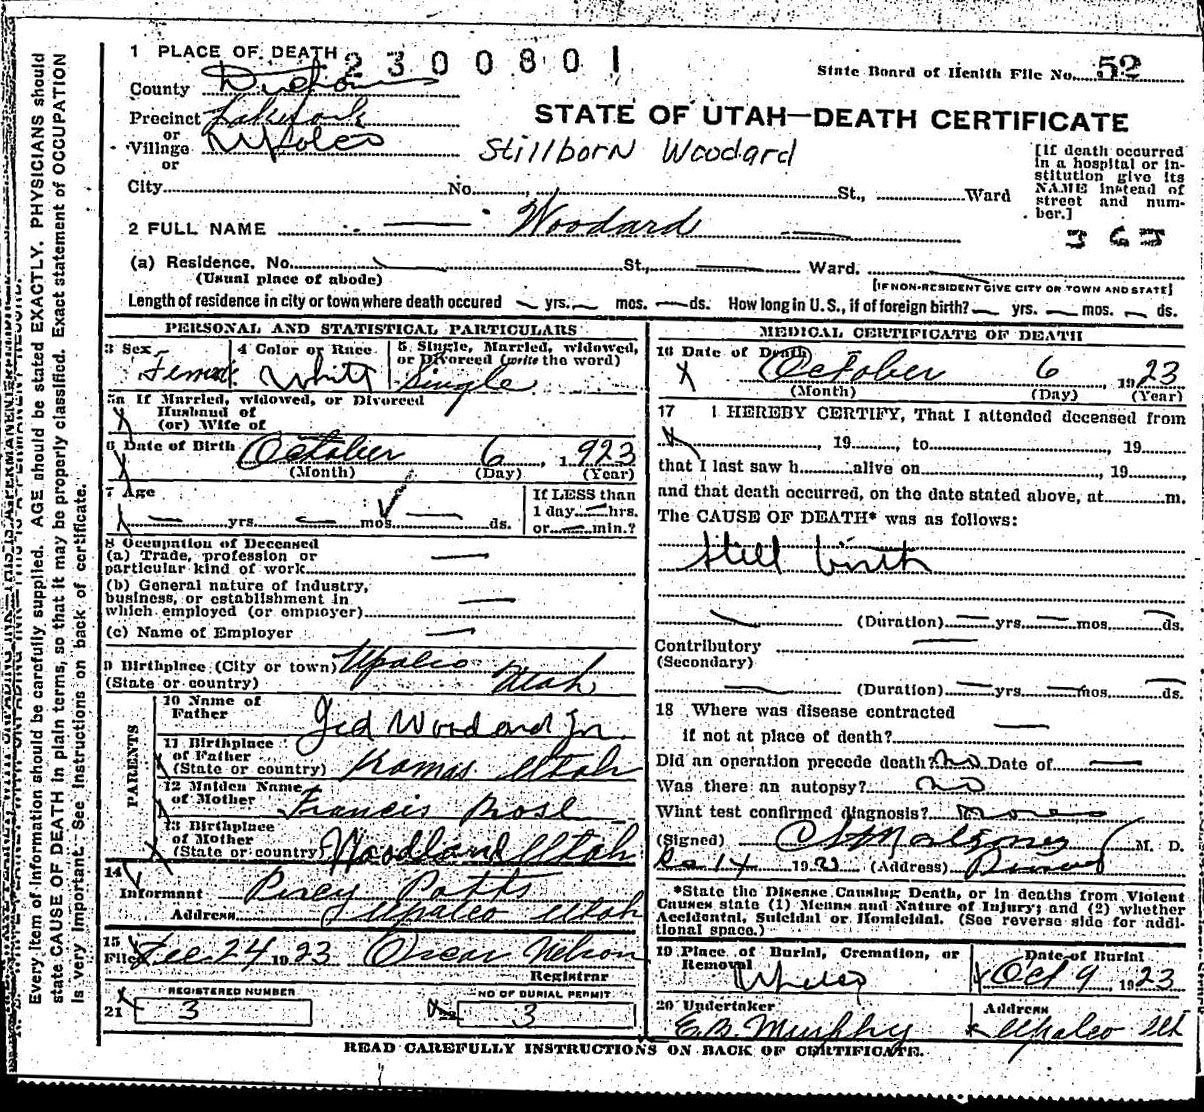 1 PLACE OF DEATH 2300801
State Board of Health File No. 52
County Duchesne
Precinct Lakefork
or
Village Upalco
or
STATE OF UTAH—DEATH CERTIFICATE
Stillborn Woodard
[If death occurred in a hospital or institution give its NAME instead of street and number.]
City No. , St., Ward
2 FULL NAME — Woodard —
363
(a) Residence. No. St., Ward.
(Usual place of abode)
[IF NON-RESIDENT GIVE CITY OR TOWN AND STATE]
Length of residence in city or town where death occured — yrs. — mos. — ds. How long in U.S., if of foreign birth? — yrs. — mos. — ds.
PERSONAL AND STATISTICAL PARTICULARS
3 Sex Female
4 Color or Race White
5 Single, Married, widowed, or Divorced (write the word) Single
5a If Married, widowed, or Divorced
Husband of
(or) Wife of
6 Date of Birth October 6, 1923
(Month) (Day) (Year)
7 Age — yrs. — mos. — ds.
If LESS than
1 day — hrs.
or — min.?
8 Occupation of Deceased
(a) Trade, profession or
particular kind of work —
(b) General nature of industry,
business, or establishment in
which employed (or employer) —
(c) Name of Employer —
9 Birthplace (City or town) Upalco
(State or country) Utah
PARENTS
10 Name of
Father Jed Woodard Jr.
11 Birthplace
of Father
(State or country) Kamas Utah
12 Maiden Name
of Mother Francis Rose
13 Birthplace
of Mother
(State or country) Woodland Utah
14
Informant Percy Potts
Address Upalco Utah
15
Filed Dec 24 1923 Oscar Nelson
Registrar
21 REGISTERED NUMBER 3
22 NO OF BURIAL PERMIT 3
MEDICAL CERTIFICATE OF DEATH
16 Date of Death October 6, 1923
(Month) (Day) (Year)
17 I HEREBY CERTIFY, That I attended deceased from
, 19 , to , 19
that I last saw h alive on , 19
and that death occurred, on the date stated above, at m.
The CAUSE OF DEATH* was as follows:
Still birth
(Duration) — yrs. — mos. — ds.
Contributory —
(Secondary)
(Duration) — yrs. — mos. — ds.
18 Where was disease contracted
if not at place of death? —
Did an operation precede death? No Date of —
Was there an autopsy? no
What test confirmed diagnosis?
(Signed) M. D.
Dec 14 1923 (Address)
*State the Disease Causing Death, or in deaths from Violent
Causes state (1) Means and Nature of Injury; and (2) whether
Accidental, Suicidal or Homicidal. (See reverse side for addi-
tional space.)
19 Place of Burial, Cremation, or
Removal Upalco
Date of Burial
Oct 9, 1923
20 Undertaker
E.B. Murphy
Address
Upalco Ut
READ CAREFULLY INSTRUCTIONS ON BACK OF CERTIFICATE.
Every item of information should be carefully supplied. AGE should be stated EXACTLY. PHYSICIANS should
state CAUSE OF DEATH in plain terms, so that it may be properly classified. Exact statement of OCCUPATION
is very important. See instructions on back of certificate.